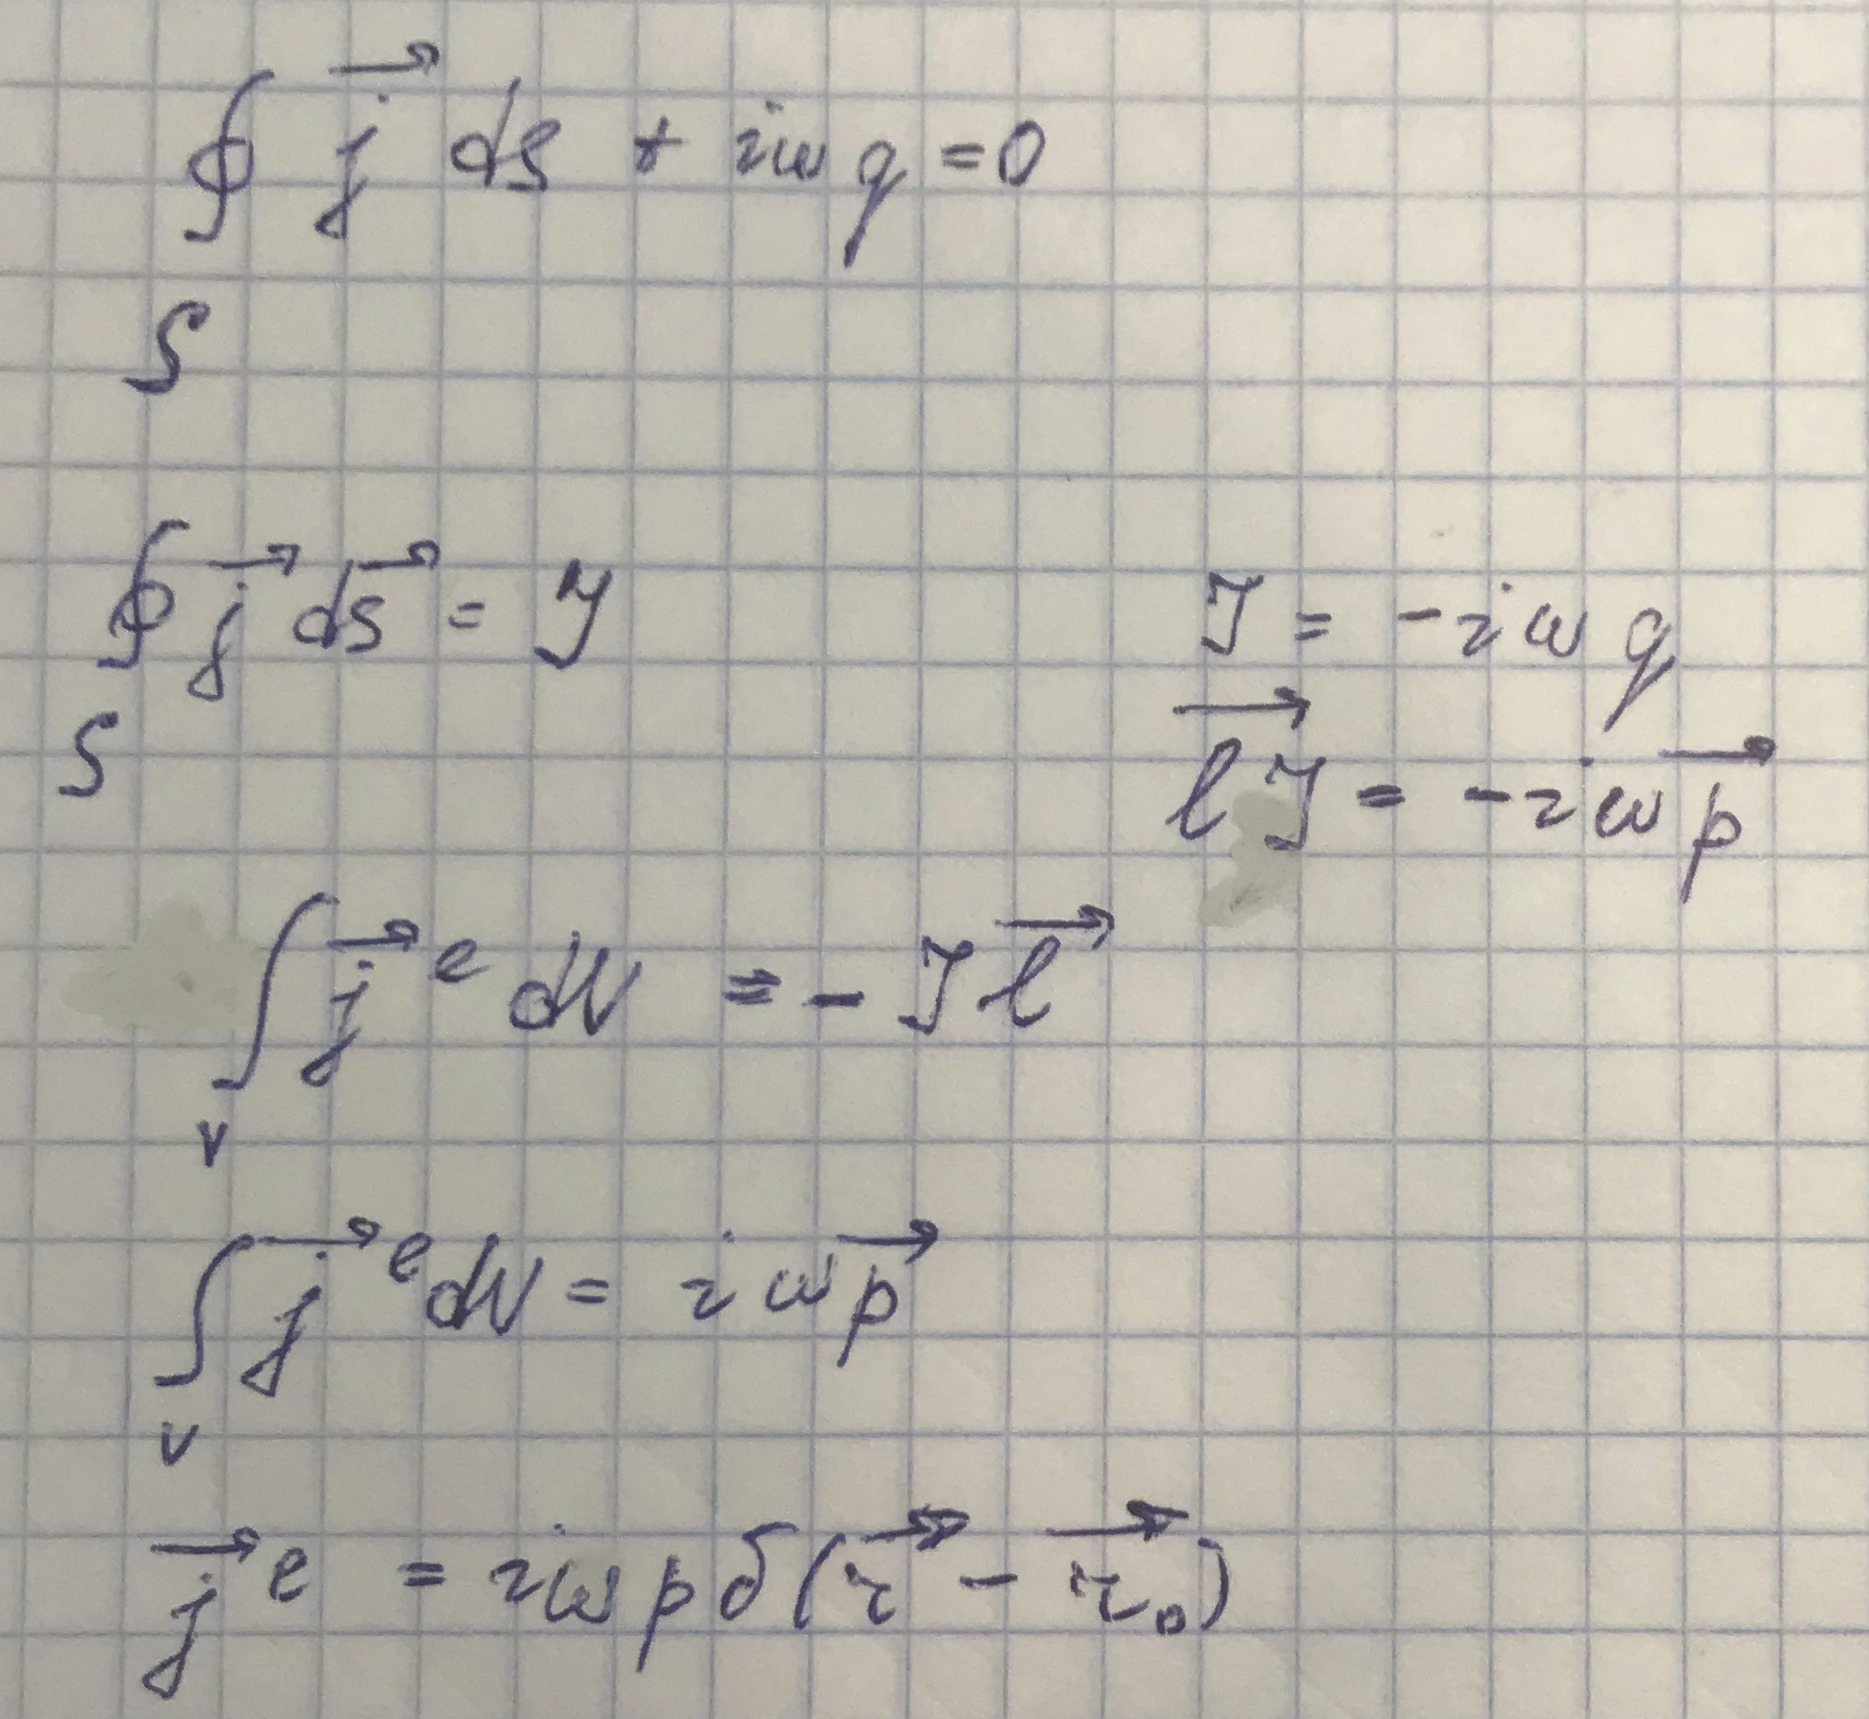 $\oint_S \vec{j} \, ds + i\omega q = 0$
$\oint_S \vec{j} \, d\vec{s} = J$
$J = -i\omega q$
$\vec{l} J = -i\omega \vec{p}$
$\int_V \vec{j}^{\,e} \, dV = -J\vec{l}$
$\int_V \vec{j}^{\,e} \, dV = i\omega \vec{p}$
$\vec{j}^{\,e} = i\omega p \, \delta(\vec{r} - \vec{r}_0)$